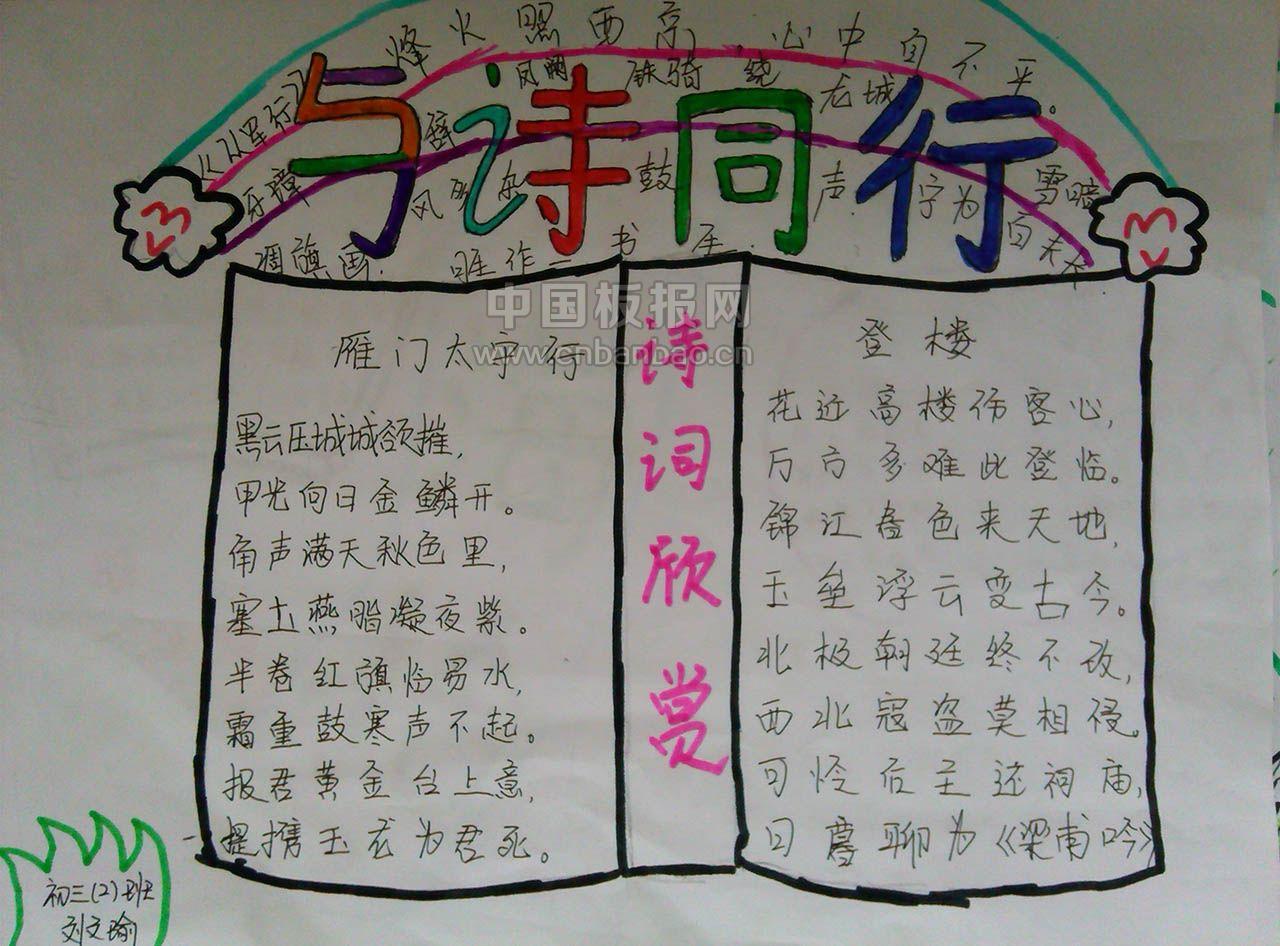 与诗同行
《从军行》
烽火照西京，心中自不平。
牙璋辞凤阙，铁骑绕龙城
雪暗
凋旗画.
风多杂鼓声.
宁为百夫
作一书生.
中国板报网
www.cnbanbao.cn
雁门太守行
黑云压城城欲摧，
甲光向日金鳞开。
角声满天秋色里，
塞上燕脂凝夜紫。
半卷红旗临易水，
霜重鼓寒声不起。
报君黄金台上意，
提携玉龙为君死。
诗词欣赏
登楼
花近高楼伤客心，
万方多难此登临。
锦江春色来天地，
玉垒浮云变古今。
北极朝廷终不改，
西北寇盗莫相侵。
可怜后主还祠庙，
日暮聊为《梁甫吟》
初三(2)班
刘文瑜